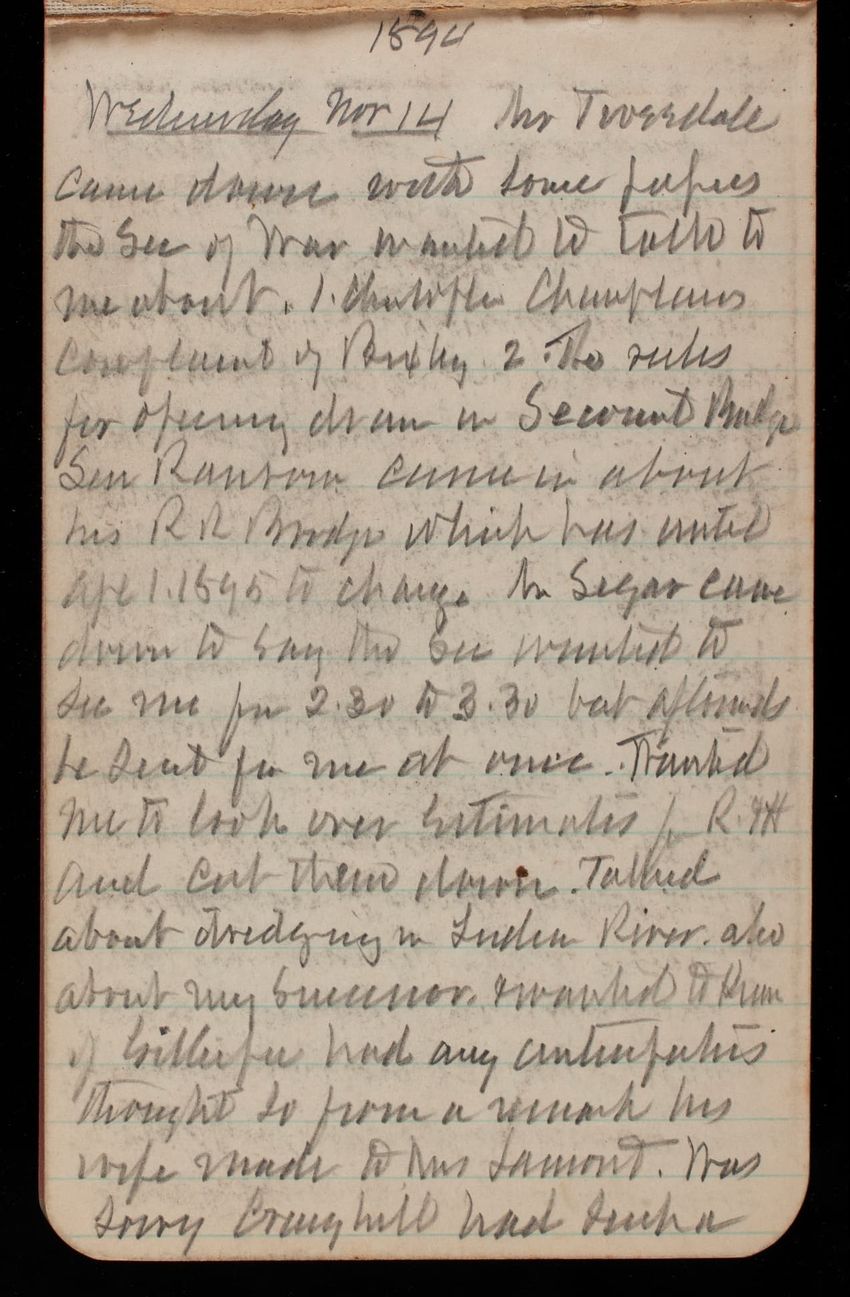 1894
Wednesday Nov 14 Mr Tweedale
came down with some papers
the Sec of War wanted to talk to
me about. 1. Champlains
Complaint of Bixby 2. The rules
for opening draw in Bridge
Sen Ransom came in about
his R R Bridge which has until
Apl 1. 1895 to change. Mr Segar came
down to say the Sec wanted to
see me fr 2.30 to 3.30 but afterwds
he sent for me at once. Wanted
me to look over Estimates for R. & H
and cut them down. Talked
about dredging in Indian River. also
about my Successor. & wanted to know
if Gillespie had any antipathies
thought so from a remark his
wife made to Mrs Lamont. Was
sorry Craighill had such a